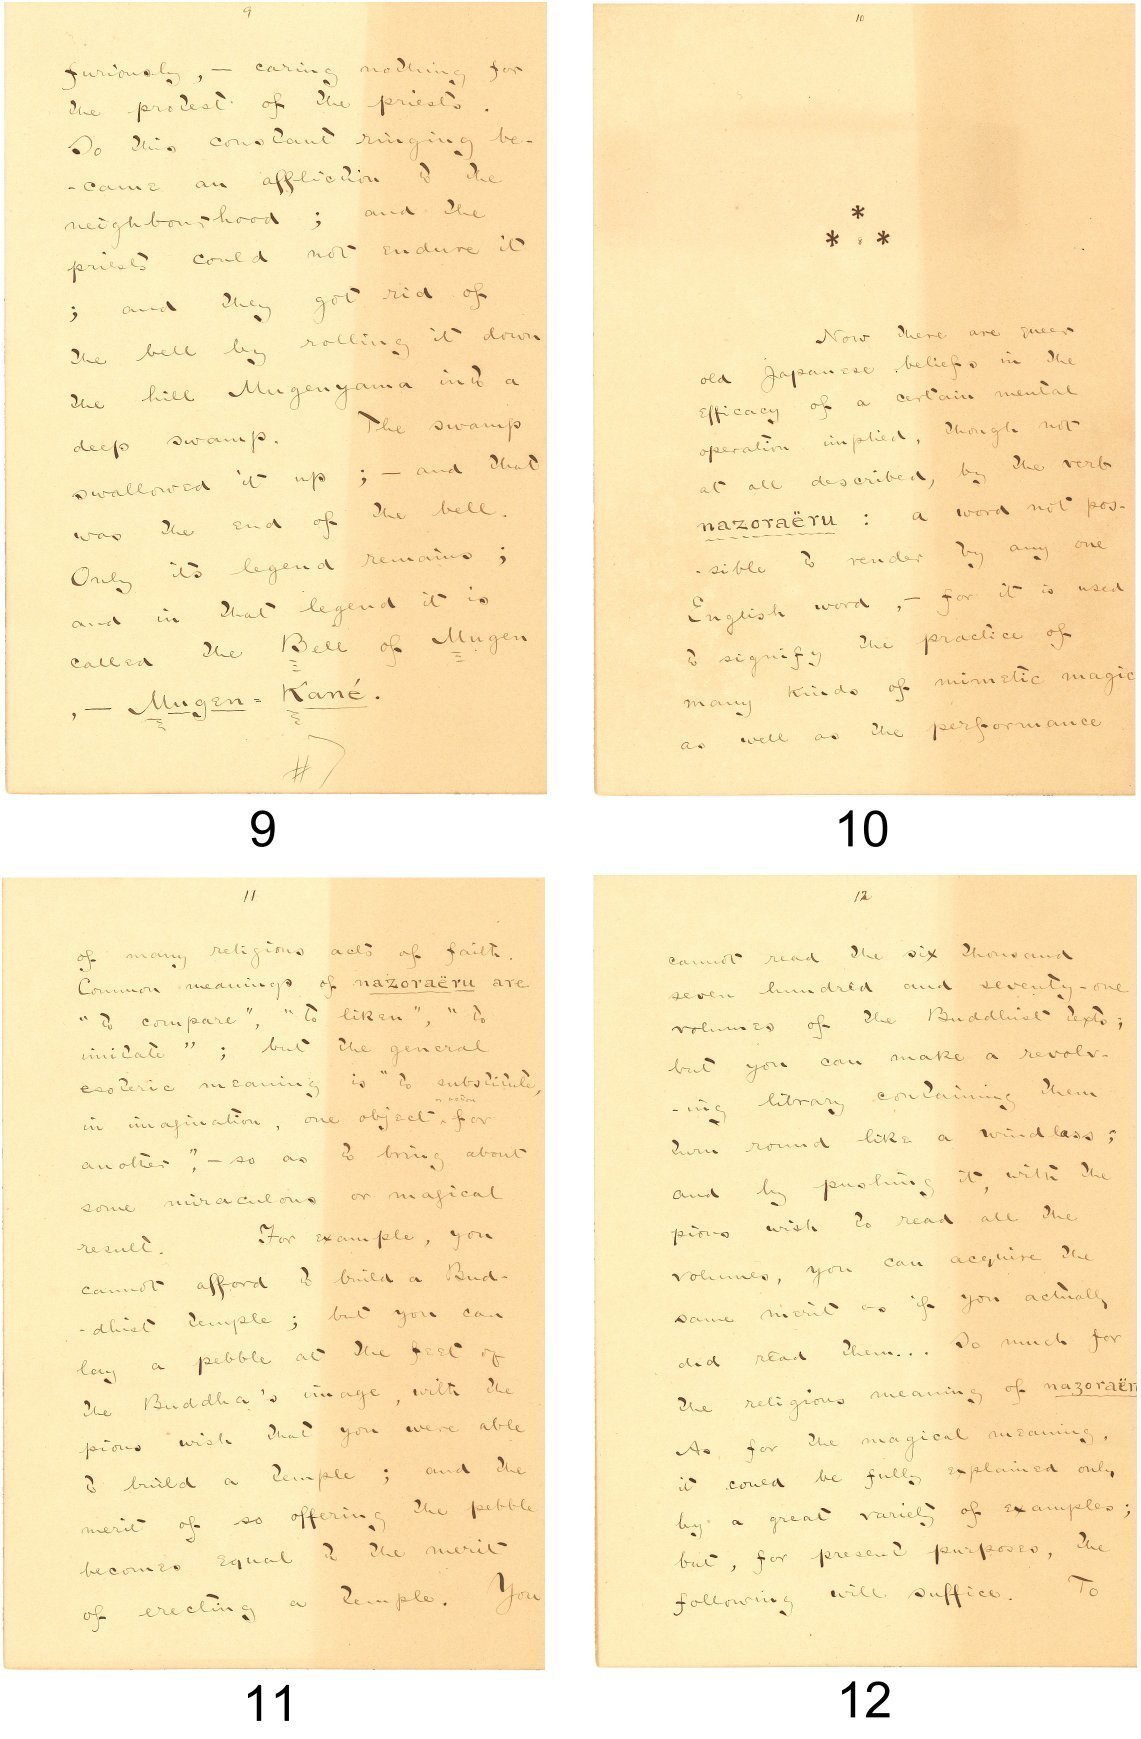 9
furiously, — caring nothing for
the protest of the priests.
So this constant ringing be-
-came an affliction to the
neighbourhood ; and the
priests could not endure it
; and they got rid of
the bell by rolling it down
the hill Mugenyama into a
deep swamp. The swamp
swallowed it up ; — and that
was the end of the bell.
Only its legend remains ;
and in that legend it is
called the Bell of Mugen
, — Mugen = Kané.
#
9
10
* * *
Now there are queer
old Japanese beliefs in the
efficacy of a certain mental
operation implied, though not
at all described, by the verb
nazoraëru : a word not pos-
-sible to render by any one
English word , — for it is used
to signify the practice of
many kinds of mimetic magic
as well as the performance
10
11
of many religious acts of faith.
Common meanings of nazoraëru are
"to compare", "to liken", "to
imitate" ; but the general
esoteric meaning is "to substitute,
in imagination, one object or action for
another", — so as to bring about
some miraculous or magical
result. For example, you
cannot afford to build a Bud-
-dhist temple ; but you can
lay a pebble at the feet of
the Buddha's image, with the
pious wish that you were able
to build a temple ; and the
merit of so offering the pebble
becomes equal to the merit
of erecting a temple. You
11
12
cannot read the six thousand
seven hundred and seventy-one
volumes of the Buddhist texts ;
but you can make a revolv-
-ing library containing them
turn round like a windlass ;
and by pushing it, with the
pious wish to read all the
volumes, you can acquire the
same merit as if you actually
did read them... So much for
the religious meaning of nazoraër
As for the magical meaning,
it could be fully explained only
by a great variety of examples ;
but, for present purposes, the
following will suffice. To
12